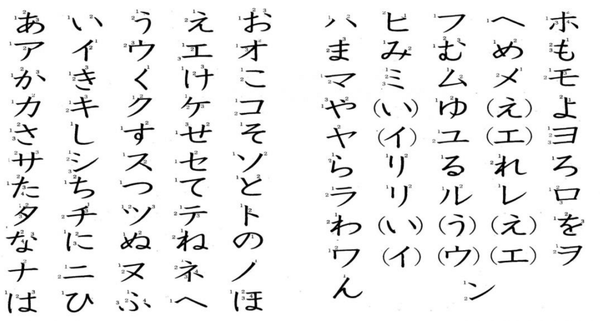 あ い う え お
ア イ ウ エ オ
か き く け こ
カ キ ク ケ コ
さ し す せ そ
サ シ ス セ ソ
た ち つ て と
タ チ ツ テ ト
な に ぬ ね の
ナ ニ ヌ ネ ノ
は ひ ふ へ ほ
ハ ヒ フ ヘ ホ
ま み む め も
マ ミ ム メ モ
や (い) ゆ (え) よ
ヤ (イ) ユ (エ) ヨ
ら り る れ ろ
ラ リ ル レ ロ
わ (い) (う) (え) を
ワ (イ) (ウ) (エ) ヲ
ん ン